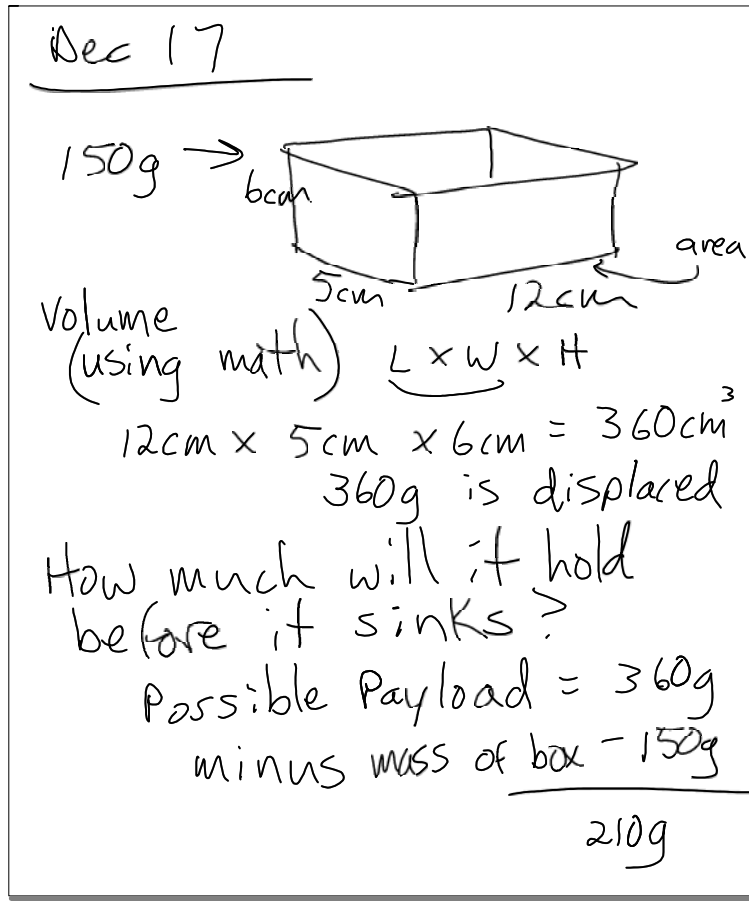 Dec 17
150g →
6cm
area
5cm
12cm
Volume
(using math) L × W × H
12cm × 5cm × 6cm = 360cm³
360g is displaced
How much will it hold
before it sinks?
Possible Payload = 360g
minus mass of box - 150g
210g